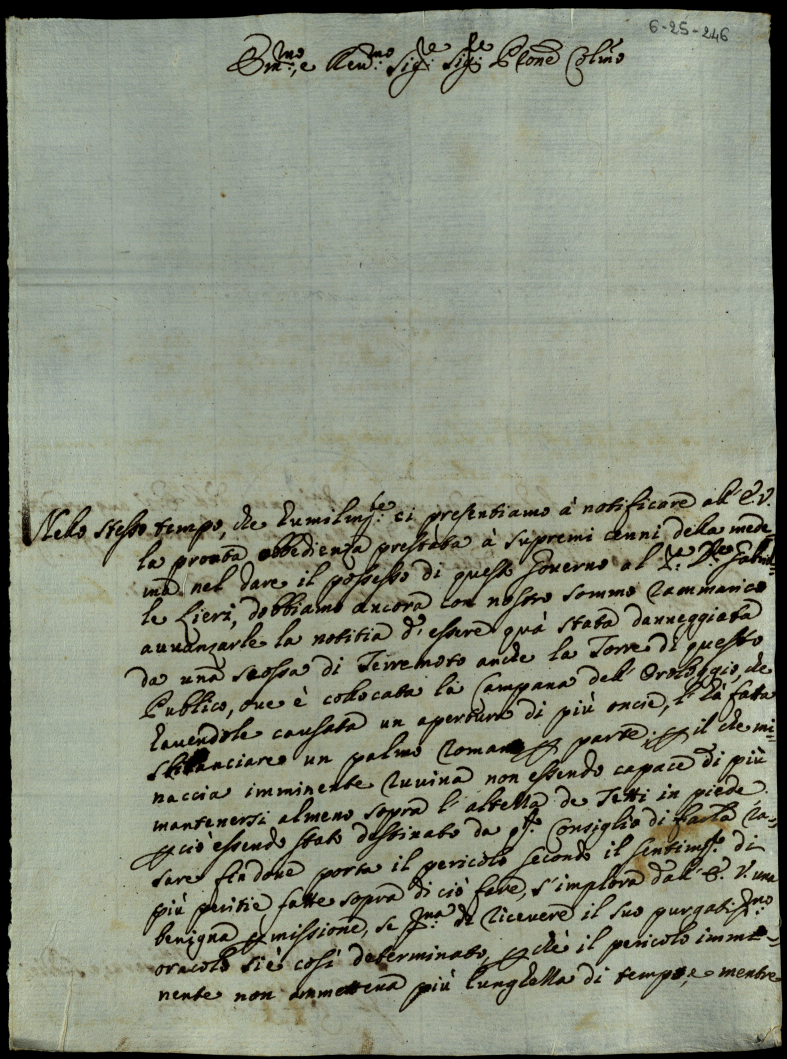 6-25-246
Em.mo, e Rev.mo Sig.re Sig.re P̃rone Col.mo
Nello stesso tempo, che humilm.te ci presentiamo à notificare all' E. V.
la pronta obbedienza prestata à supremi cenni della mede-
ma nel dare il possesso di questo Governo al S.re D.re Gabriel-
le Lieri, dobbiamo ancora con nostro sommo rammarico
avvanzarle la notitia d' essere quà stata danneggiata
da una scossa di Terremoto anche la Torre di questo
Publico, ove è collocata la Campana dell' Orologgio, che
havendole causata un apertura di più oncie, l' hà fatta
sbilanciare un palmo romano p parte; p il che mi-
naccia imminente ruvina non essendo capace di più
mantenersi almeno sopra l' altezza de Tetti in piede
p ciò essendo stato destinato da q.sto Consiglio di farla ra-
sare fin dove porta il pericolo secondo il sentim.to di
più peritie fatte sopra di ciò fare, s' implora dall' E. V. una
benigna p missione, se p.ma di ricevere il suo purgatiss.mo
oracolo si è così determinato, p che il pericolo immi-
nente non ammetteva più lunghezza di tempo, e mentre